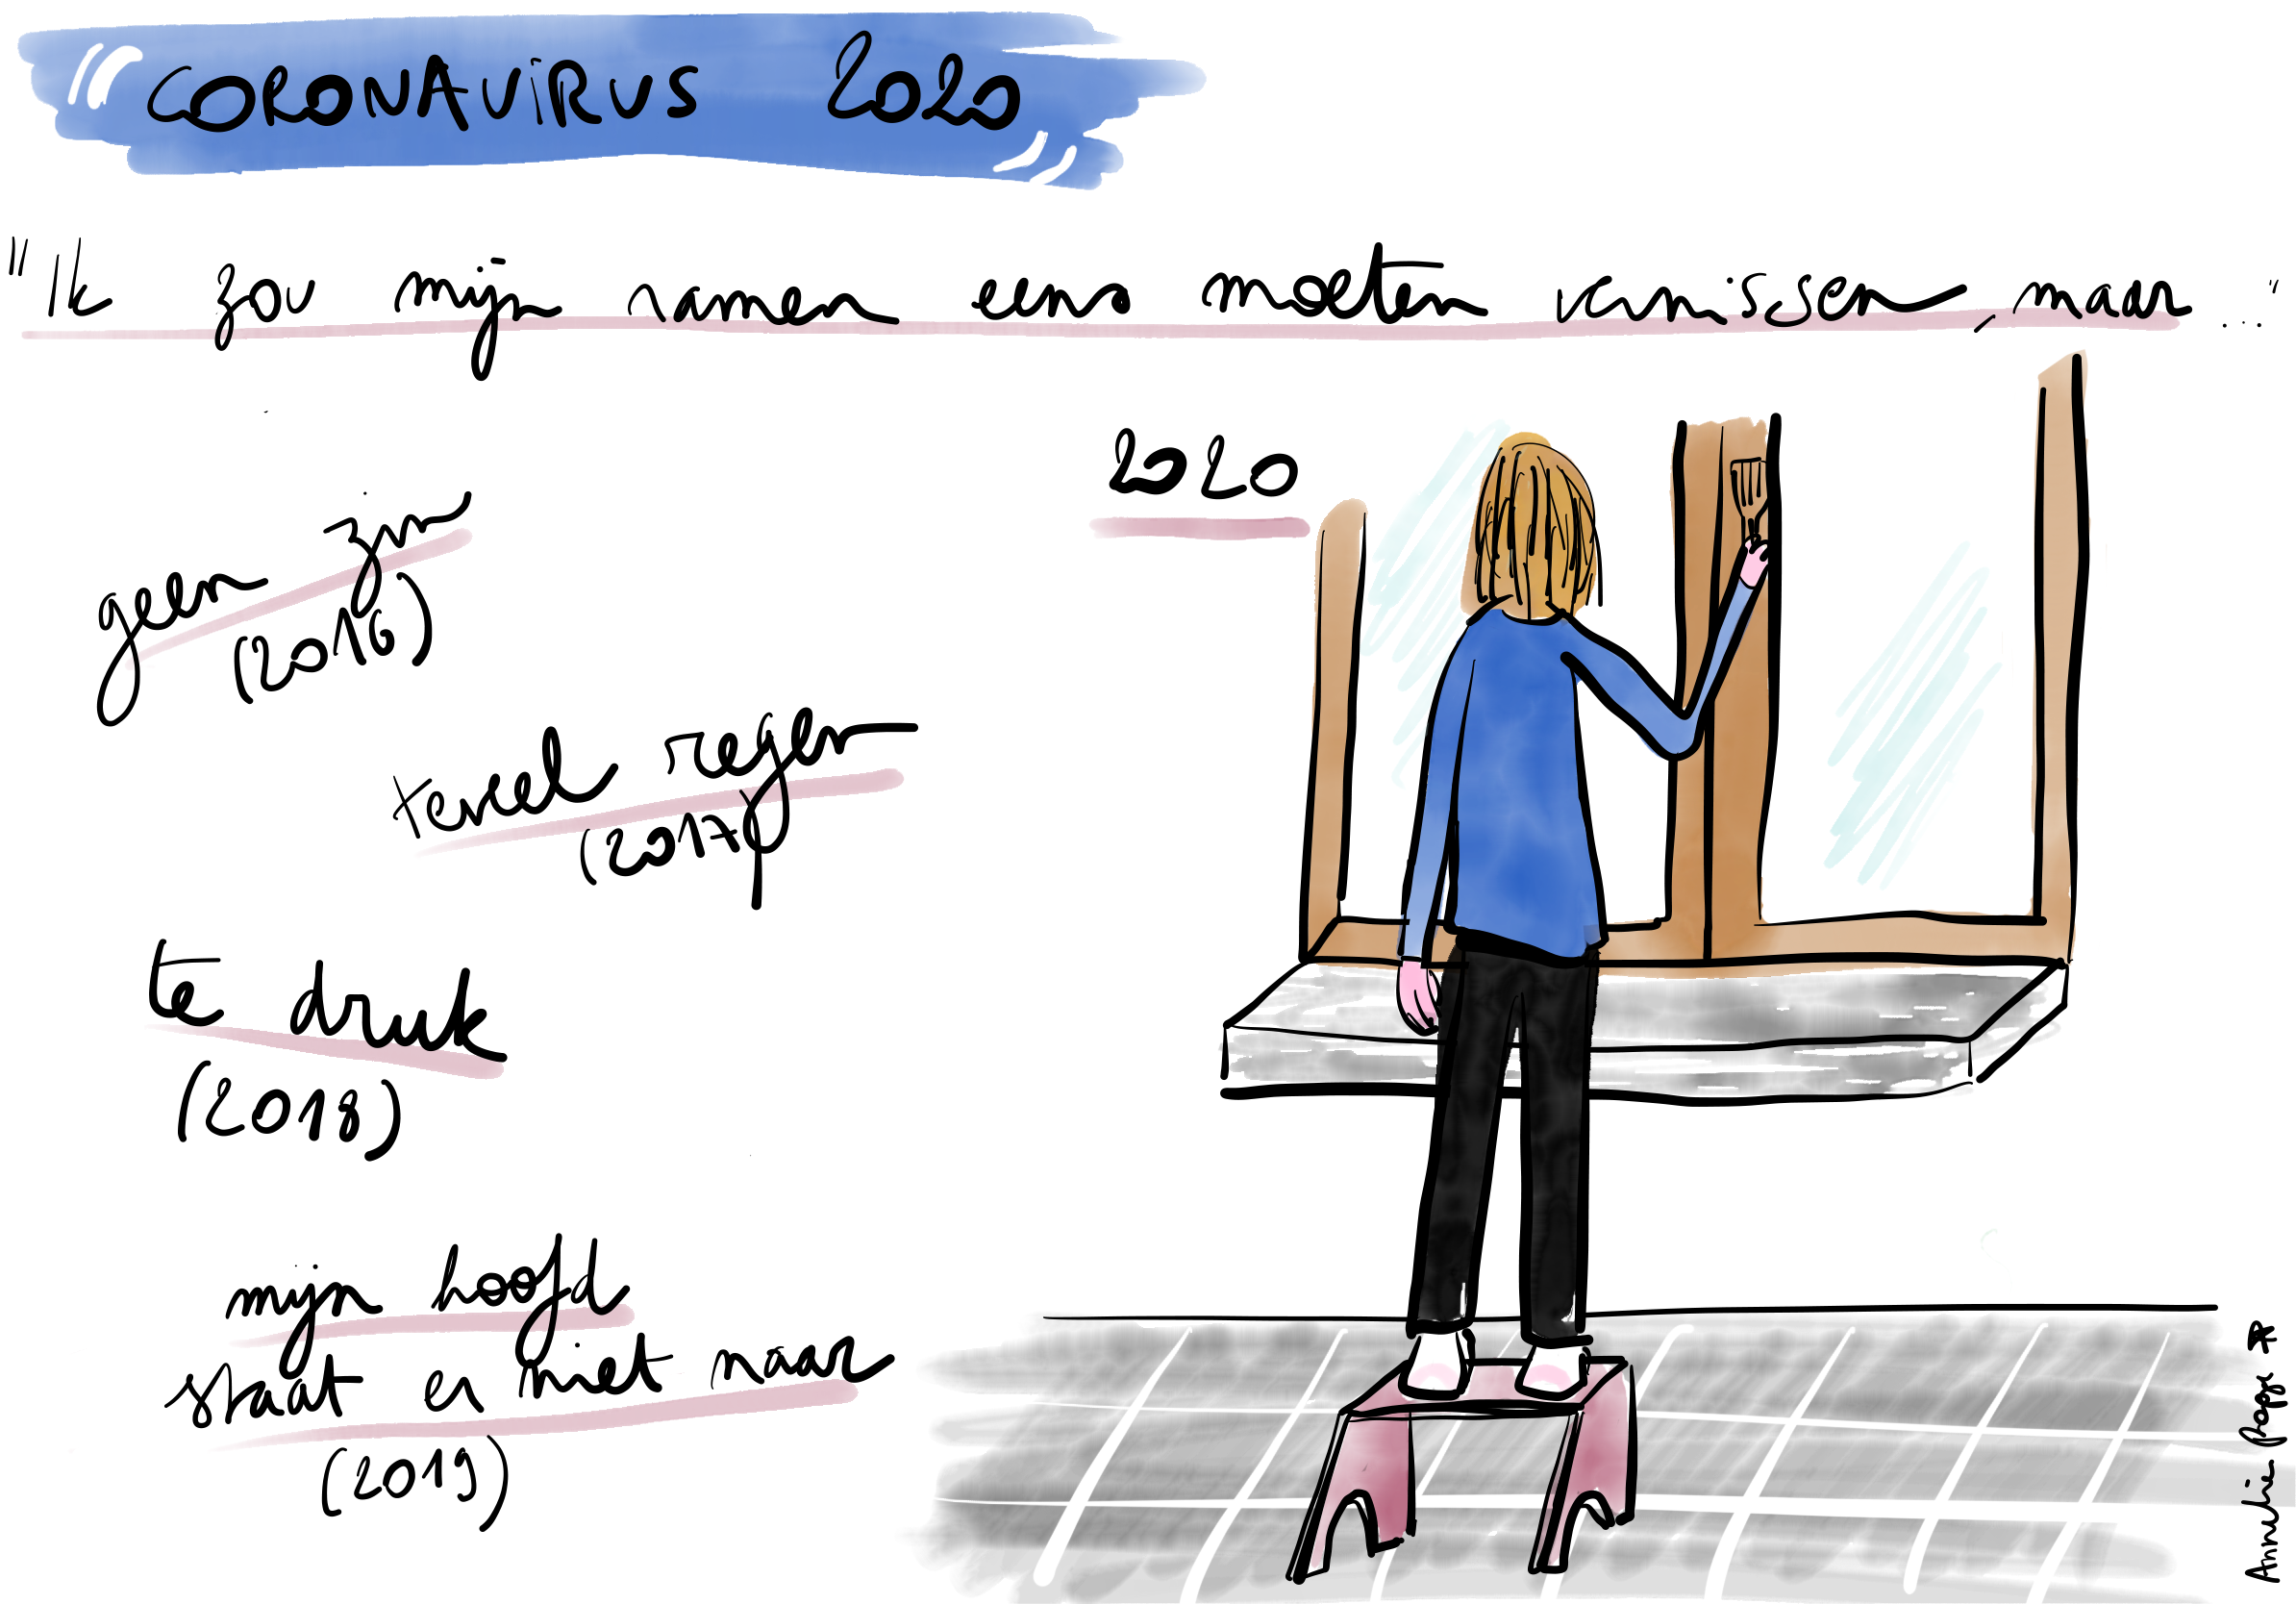 "CORONAVIRUS 2020"
"Ik zou mijn ramen eens moeten vernissen, maar ..."
geen zin
(2016)
2020
teveel regen
(2017)
te druk
(2018)
mijn hoofd
staat er niet naar
(2019)